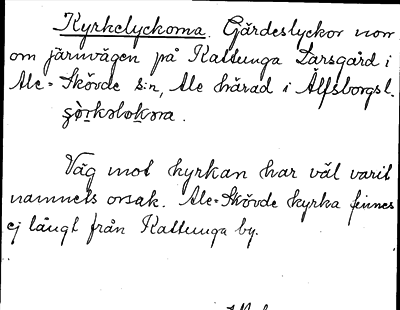 Kyrkelyckorna. Gärdeslyckor norr
om järnvägen på Kattunga Larsgård i
Ale-Skövde s:n, Ale härad i Älfsborgs l.
Väg mot kyrkan har väl varit
namnets orsak. Ale-Skövde kyrka finnes
ej långt från Kattunga by.